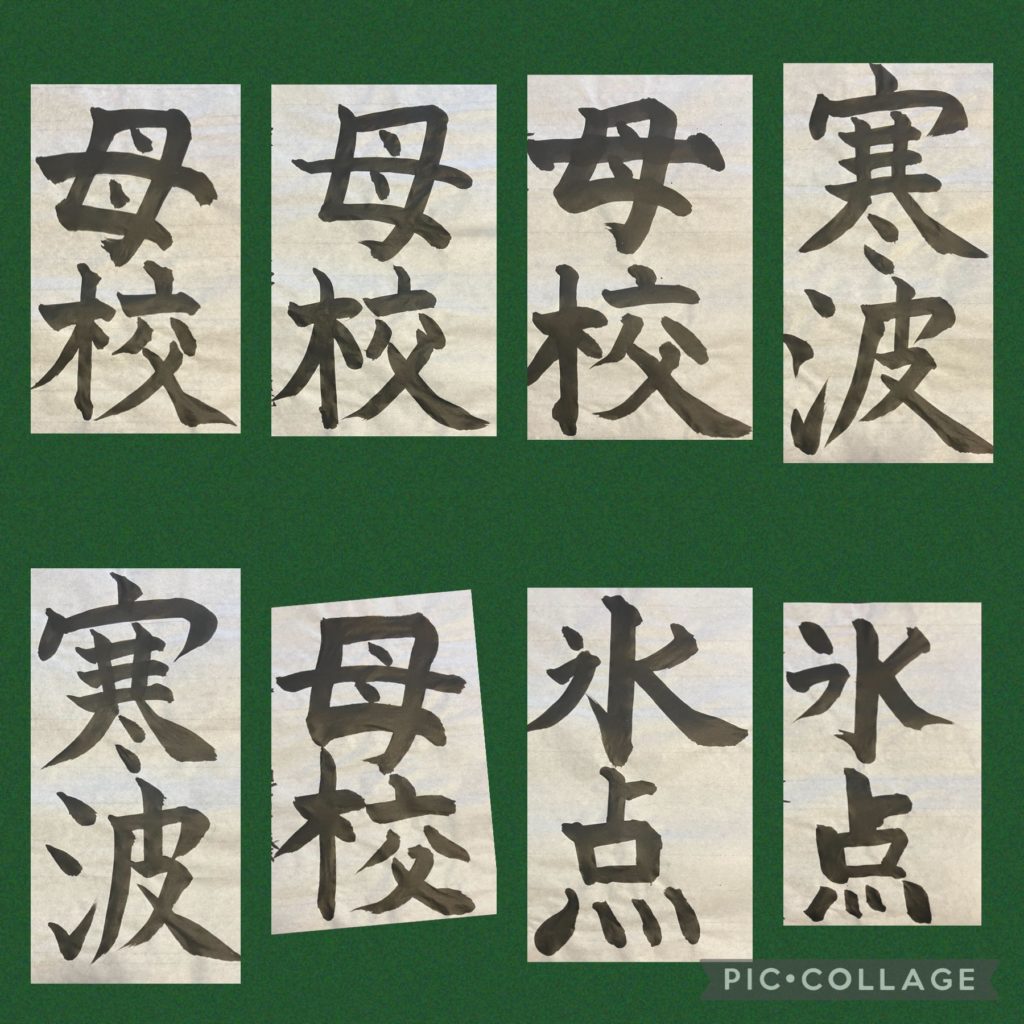 母校
母校
母校
寒波
寒波
母校
氷点
氷点
PIC•COLLAGE